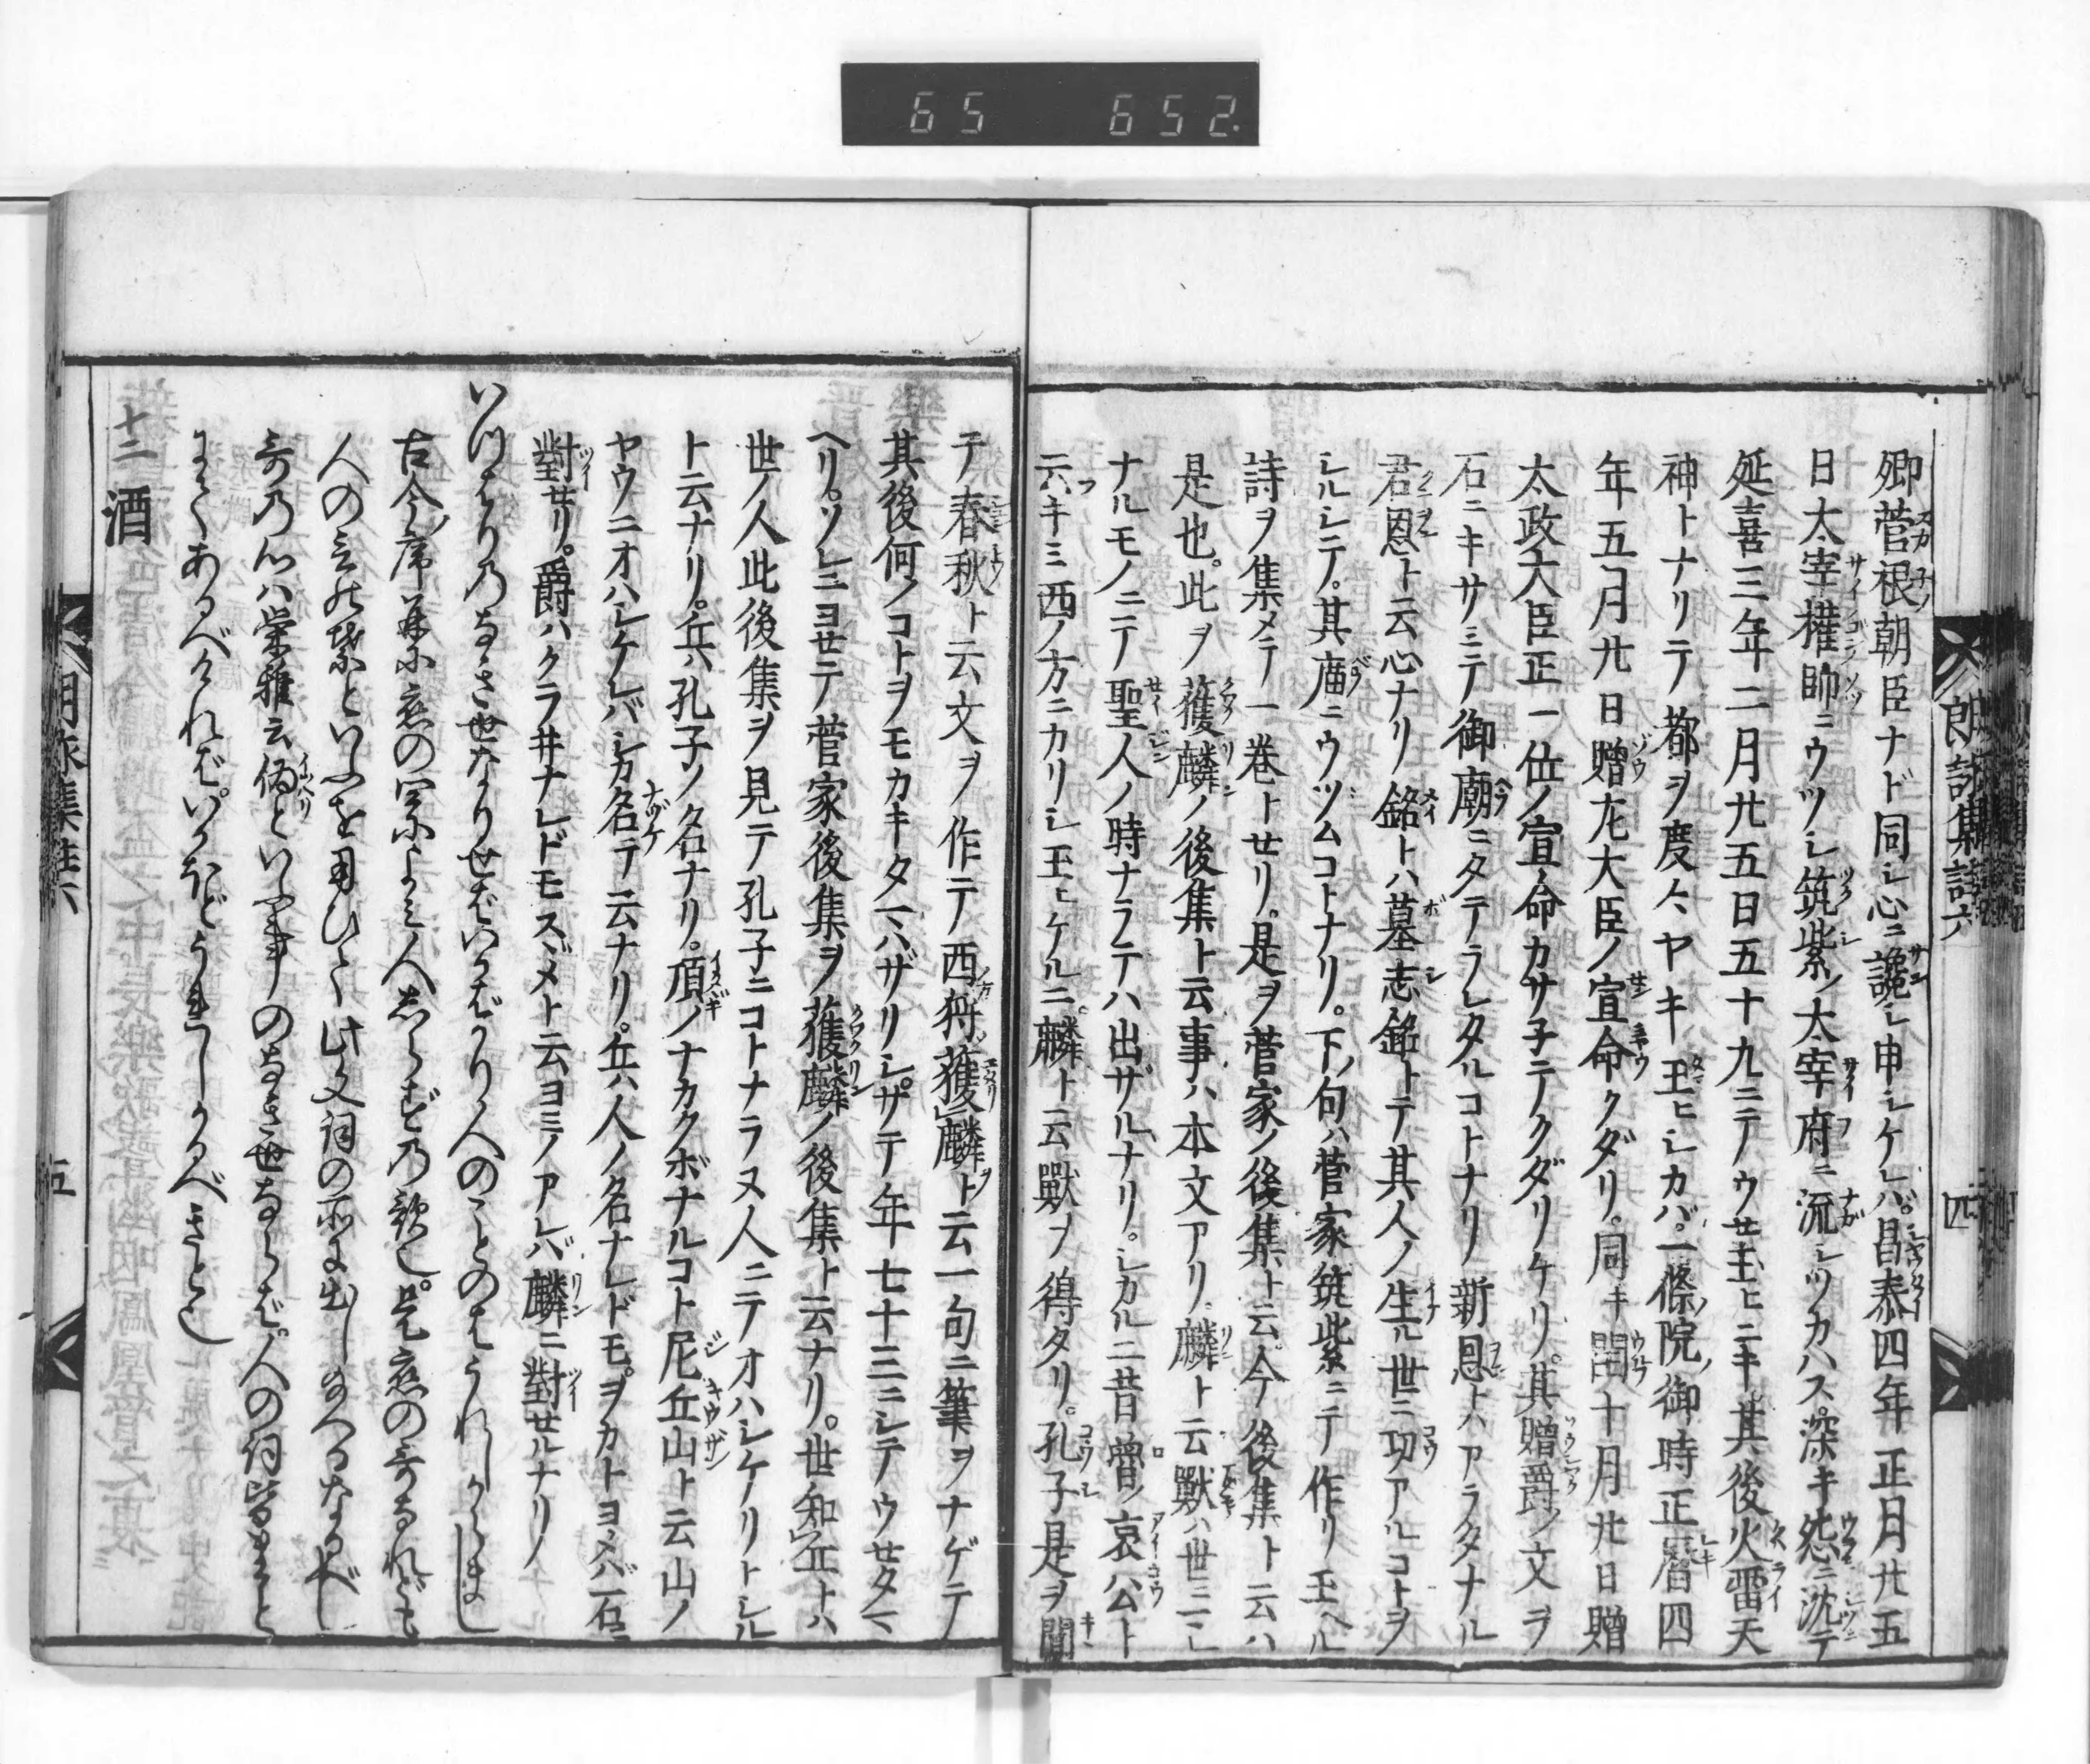 65 652.
朗詠集註六 四
卿菅根朝臣ナド同シ心ニ讒シ申シケレバ。昌泰四年正月廿五
日太宰權帥ニウツシ筑紫ノ太宰府ニ流シツカハス。深キ怨ニ沈テ
延喜三年二月廿五日五十九ニテウセ玉ヒニキ其後火雷天
神トナリテ都ヲ度々ヤキ玉ヒシカバ。一條院ノ御時正曆四
年五月廿日贈左大臣ノ宣命クダリ。同キ閏十月廿日贈
太政大臣正一位ノ宣命カサ子テクダリケリ。其贈爵ノ文ヲ
石ニキサミテ御廟ニタテラレタルコトナリ新恩トハアラタナル
君恩ト云心ナリ銘トハ墓志銘トテ其人ノ生ル世ニ功アルコトヲ
シルシテ。其廟ニウツムコトナリ。下ノ句ハ菅家筑紫ニテ作リ玉ヘル
詩ヲ集メテ一巻トセリ。是ヲ菅家ノ後集ト云。今後集ト云ハ
是也。此ヲ獲麟ノ後集ト云事ハ本文アリ。麟ト云獸ハ世ニマレ
ナルモノニテ聖人ノ時ナラテハ出ザルナリ。シカルニ昔魯ノ哀公ト
云フキミ西ノ方ニカリシ玉ヒケルニ麟ト云獸ヲ得タリ。孔子是ヲ聞
テ春秋ト云文ヲ作テ西狩獲麟ト云一句ニ筆ヲナゲテ
其後何ノコトヲモカキタマハザリシ。サテ年七十三ニシテウセタマ
ヘリ。ソレニヨセテ菅家後集ヲ獲麟ノ後集ト云ナリ。世知丘トハ
世ノ人此後集ヲ見テ孔子ニコトナラヌ人ニテオハシケリトシル
ト云ナリ。丘ハ孔子ノ名ナリ。頂ノナカクボナルコト尼丘山ト云山ノ
ヤウニオハシケレバシカ名テ云ナリ。丘ハ人ノ名ナレドモ。ヲカトヨメバ石ニ
對セリ。爵ハクラ井ナレドモスヾメト云ヨミノアレバ麟ニ對セルナリ
いつはりのなき世なりせばいかばかり人のことのはうれしからまし
古今ノ序并に戀の四によみ人しらずの歌也。是戀の哥なれども
人のことの葉といふを用ひて此文詞の部に出し給へるなるべし
哥の心ハ榮雅云偽といふ事のなき世ならば人の詞皆まこと
にてあるべければ。いかほどうれしかるべきと也
十二 酒
朗詠集註六 五